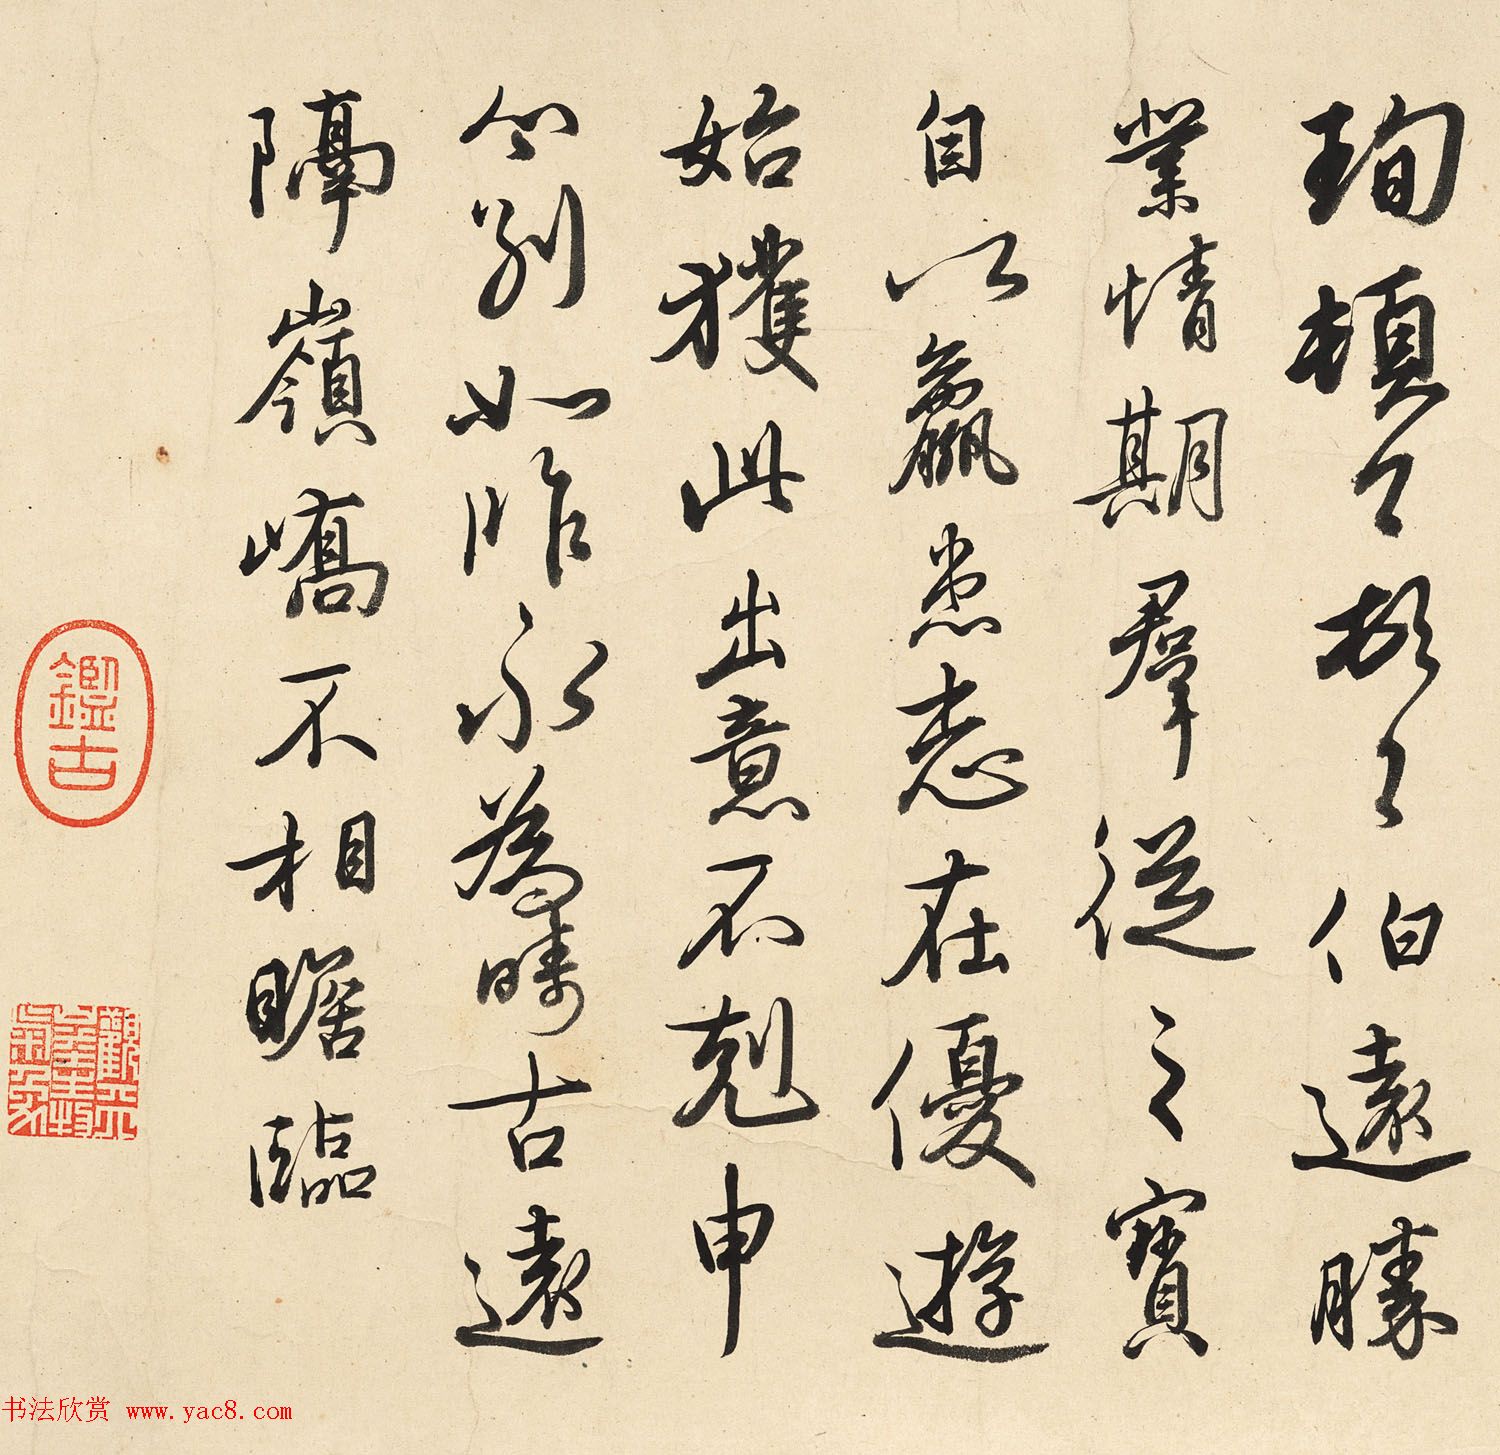 珣頓=頓=伯遠勝
業情期羣從之寶
自以羸患志在優遊
始獲此出意不剋申
分別如昨永為疇古遠
隔嶺嶠不相瞻臨
鑑古
书法欣赏 www.yac8.com